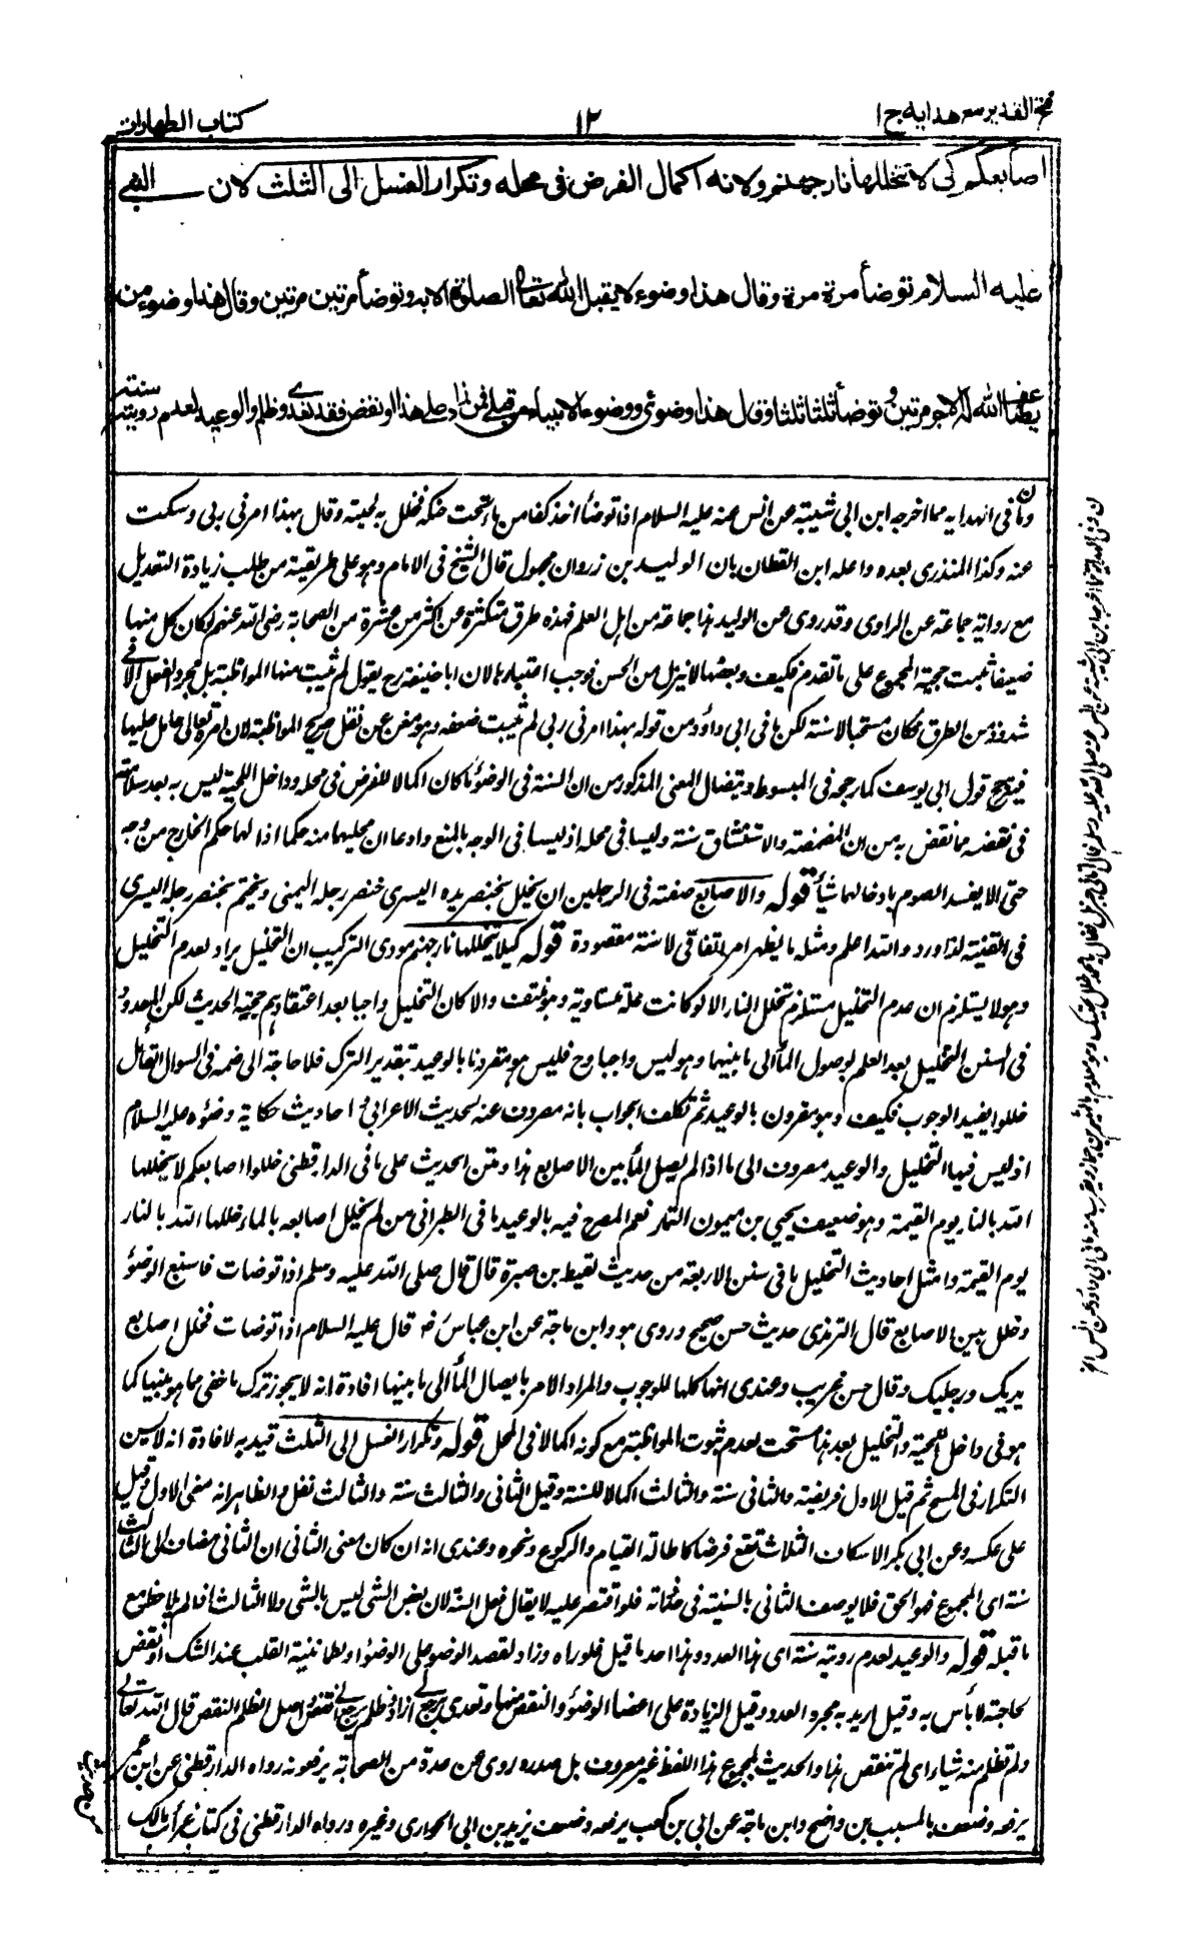 فتح القدير مع هدايه ج ا
١٢
كتاب الطهارات
اصابعكم كى لا تتخللها نار جهنم ولانه اكمال الفرض فى محله وتكرار الغسل الى الثلث لان النبى
عليه السلام توضأ مرة مرة وقال هذا وضوء لا يقبل الله تعالى الصلوة الا به وتوضأ مرتين مرتين وقال هذا وضوء من
يضاعف الله له الاجر مرتين وتوضأ ثلثا ثلثا وقال هذا وضوئى ووضوء الانبياء من قبلى فمن زاد على هذا او نقص فقد تعدى وظلم والوعيد لعدم رويته سنته
وما فى الهداية مما اخرجه ابن ابى شيبة عن انس عنه عليه السلام اذا توضأ اخذ كفا من ماء تحت حنكه فخلل به لحيته وقال بهذا امرنى ربى وسكت
عنه وكذا المنذرى بعده واعله ابن القطان بان الوليد بن زروان مجهول قال الشيخ فى الامام وهو على طريقته من طلب زيادة التعديل
مع رواية جماعة عن الراوى وقد روى عن الوليد هذا جماعة من اهل العلم فهذه طرق متكثرة عن اكثر من عشرة من الصحابة رضى الله عنهم لو كان كل منها
ضعيفا ثبت حجية المجموع على ما تقدم فكيف وبعضها لا ينزل عن الحسن فوجب اعتبارها الا ان ابا حنيفة رح يقول لم يثبت منها المواظبة بل مجرد الفعل الا فى
شذوذ من الطرق فكان مستحبا لا سنة لكن ما فى ابى داؤد من قوله بهذا امرنى ربى لم يثبت ضعفه وهو مغن عن نقل صريح المواظبة لان امره تعالى حامل عليها
فيترجح قول ابى يوسف كما رجحه فى المبسوط وتيضال المعنى المذكور من ان السنة فى الوضوء ما كان اكمالا للفرض فى محله وداخل اللحية ليس به بعد سلامته
فى نقضه مما نقض به من ان المضمضة والاستنشاق سنة وليسا فى محله اذ ليسا فى الوجه بالمنع وادعا ان محليهما منه حكما اذ لهما حكم الخارج من وجه
حتى لا يفسد الصوم بادخالهما شيأ قوله والاصابع صفته فى الرجلين ان يخلل بخنصر يده اليسرى خنصر رجله اليمنى ويختم بخنصر رجله اليسرى
فى القنية كذا ورد والله اعلم ومثله ما يظهر امر اتفاقى لا سنة مقصودة قوله كيلا تتخللها نار جهنم مودى التركيب ان التخليل يراد لعدم التخليل
وهو لا يستلزم ان عدم التخليل مستلزم تخلل النار الا لو كانت علة مساوية وهو منتف والا كان التخليل واجبا بعد اعتقادهم حجية الحديث لكن المعدود
فى السنن التخليل بعد العلم بوصول الماء الى ما بينها وهو ليس واجبا وح فليس هو مقرونا بالوعيد بتقدير الترك فلا حاجة الى ضمه فى السوال القائل
خللوا يفيد الوجوب فكيف وهو مقرون بالوعيد ثم تكلف الجواب بانه مصروف عنه لحديث الاعرابى و احاديث حكاية وضوئه عليه السلام
اذ ليس فيها التخليل والوعيد مصروف الى ما اذا لم يصل الماء بين الاصابع هذا ومتن الحديث على ما فى الدارقطنى خللوا اصابعكم لا يخللها
الله بالنار يوم القيمة وهو ضعيف بيحيى بن ميمون التمار نعم المصرح فيه بالوعيد ما فى الطبرانى من لم يخلل اصابعه بالماء خللها الله بالنار
يوم القيمة وامثل احاديث التخليل ما فى سنن الاربعة من حديث لقيط بن صبرة قال قال صلى الله عليه وسلم اذا توضأت فاسبغ الوضوء
وخلل بين الاصابع قال الترمذى حديث حسن صحيح وروى هو وابن ماجة عن ابن عباس رض قال عليه السلام اذا توضأت فخلل اصابع
يديك ورجليك وقال حسن غريب وعندى انها كلها للوجوب والمراد الامر بايصال الماء الى ما بينها افادة انه لا يجوز ترك ما خفى مما هو بينها كما
هو فى داخل اللحية والتخليل بعد هذا مستحب لعدم ثبوت المواظبة مع كونه اكمالا فى المحل قوله وتكرار الغسل الى الثلث قيد به لافادة انه لا يسن
التكرار فى المسح ثم قيل الاول فريضة والثانى سنة والثالث اكمال للسنة وقيل الثانى والثالث سنة والثالث نفل والظاهر انه معنى الاول وقيل
على عكسه وعن ابى بكر الاسكاف الثلاث تقع فرضا كاطالة القيام والركوع ونحوه وعندى انه ان كان معنى الثانى ان الثانى مضاف الى الثالث
سنة اى المجموع فهو الحق فلا يوصف الثانى بالسنية فى حد ذاته فلو اقتصر عليه لا يقال فعل السنة لان بعض الشئ ليس بالشئ ولا الثالث اذا لم يلاحظ مع
ما قبله قوله والوعيد لعدم رويته سنة اى هذا العدد وهذا احد ما قيل فلو راه وزاد لقصد الوضوء على الوضوء او لطمانينة القلب عند الشك او نقص
لحاجة لا بأس به وقيل اريد به مجرد العدد وقيل الزيادة على اعضاء الوضوء والنقص منها وتعدى يرجع الى زاد وظلم يرجع الى نقص واصل الظلم النقص قال الله تعالى
ولم تظلم منه شيأ اى لم تنقص هذا والحديث بمجموع هذا اللفظ غير معروف بل صدره روى عن عدة من الصحابة يرفعونه رواه الدارقطنى عن ابن عمر
يرفعه وضعف بالمسيب بن واضح وابن ماجة عن ابى بن كعب يرفعه وضعف بزيد بن ابى الحوارى وغيره ورواه الدارقطنى فى كتاب غرائب مالك